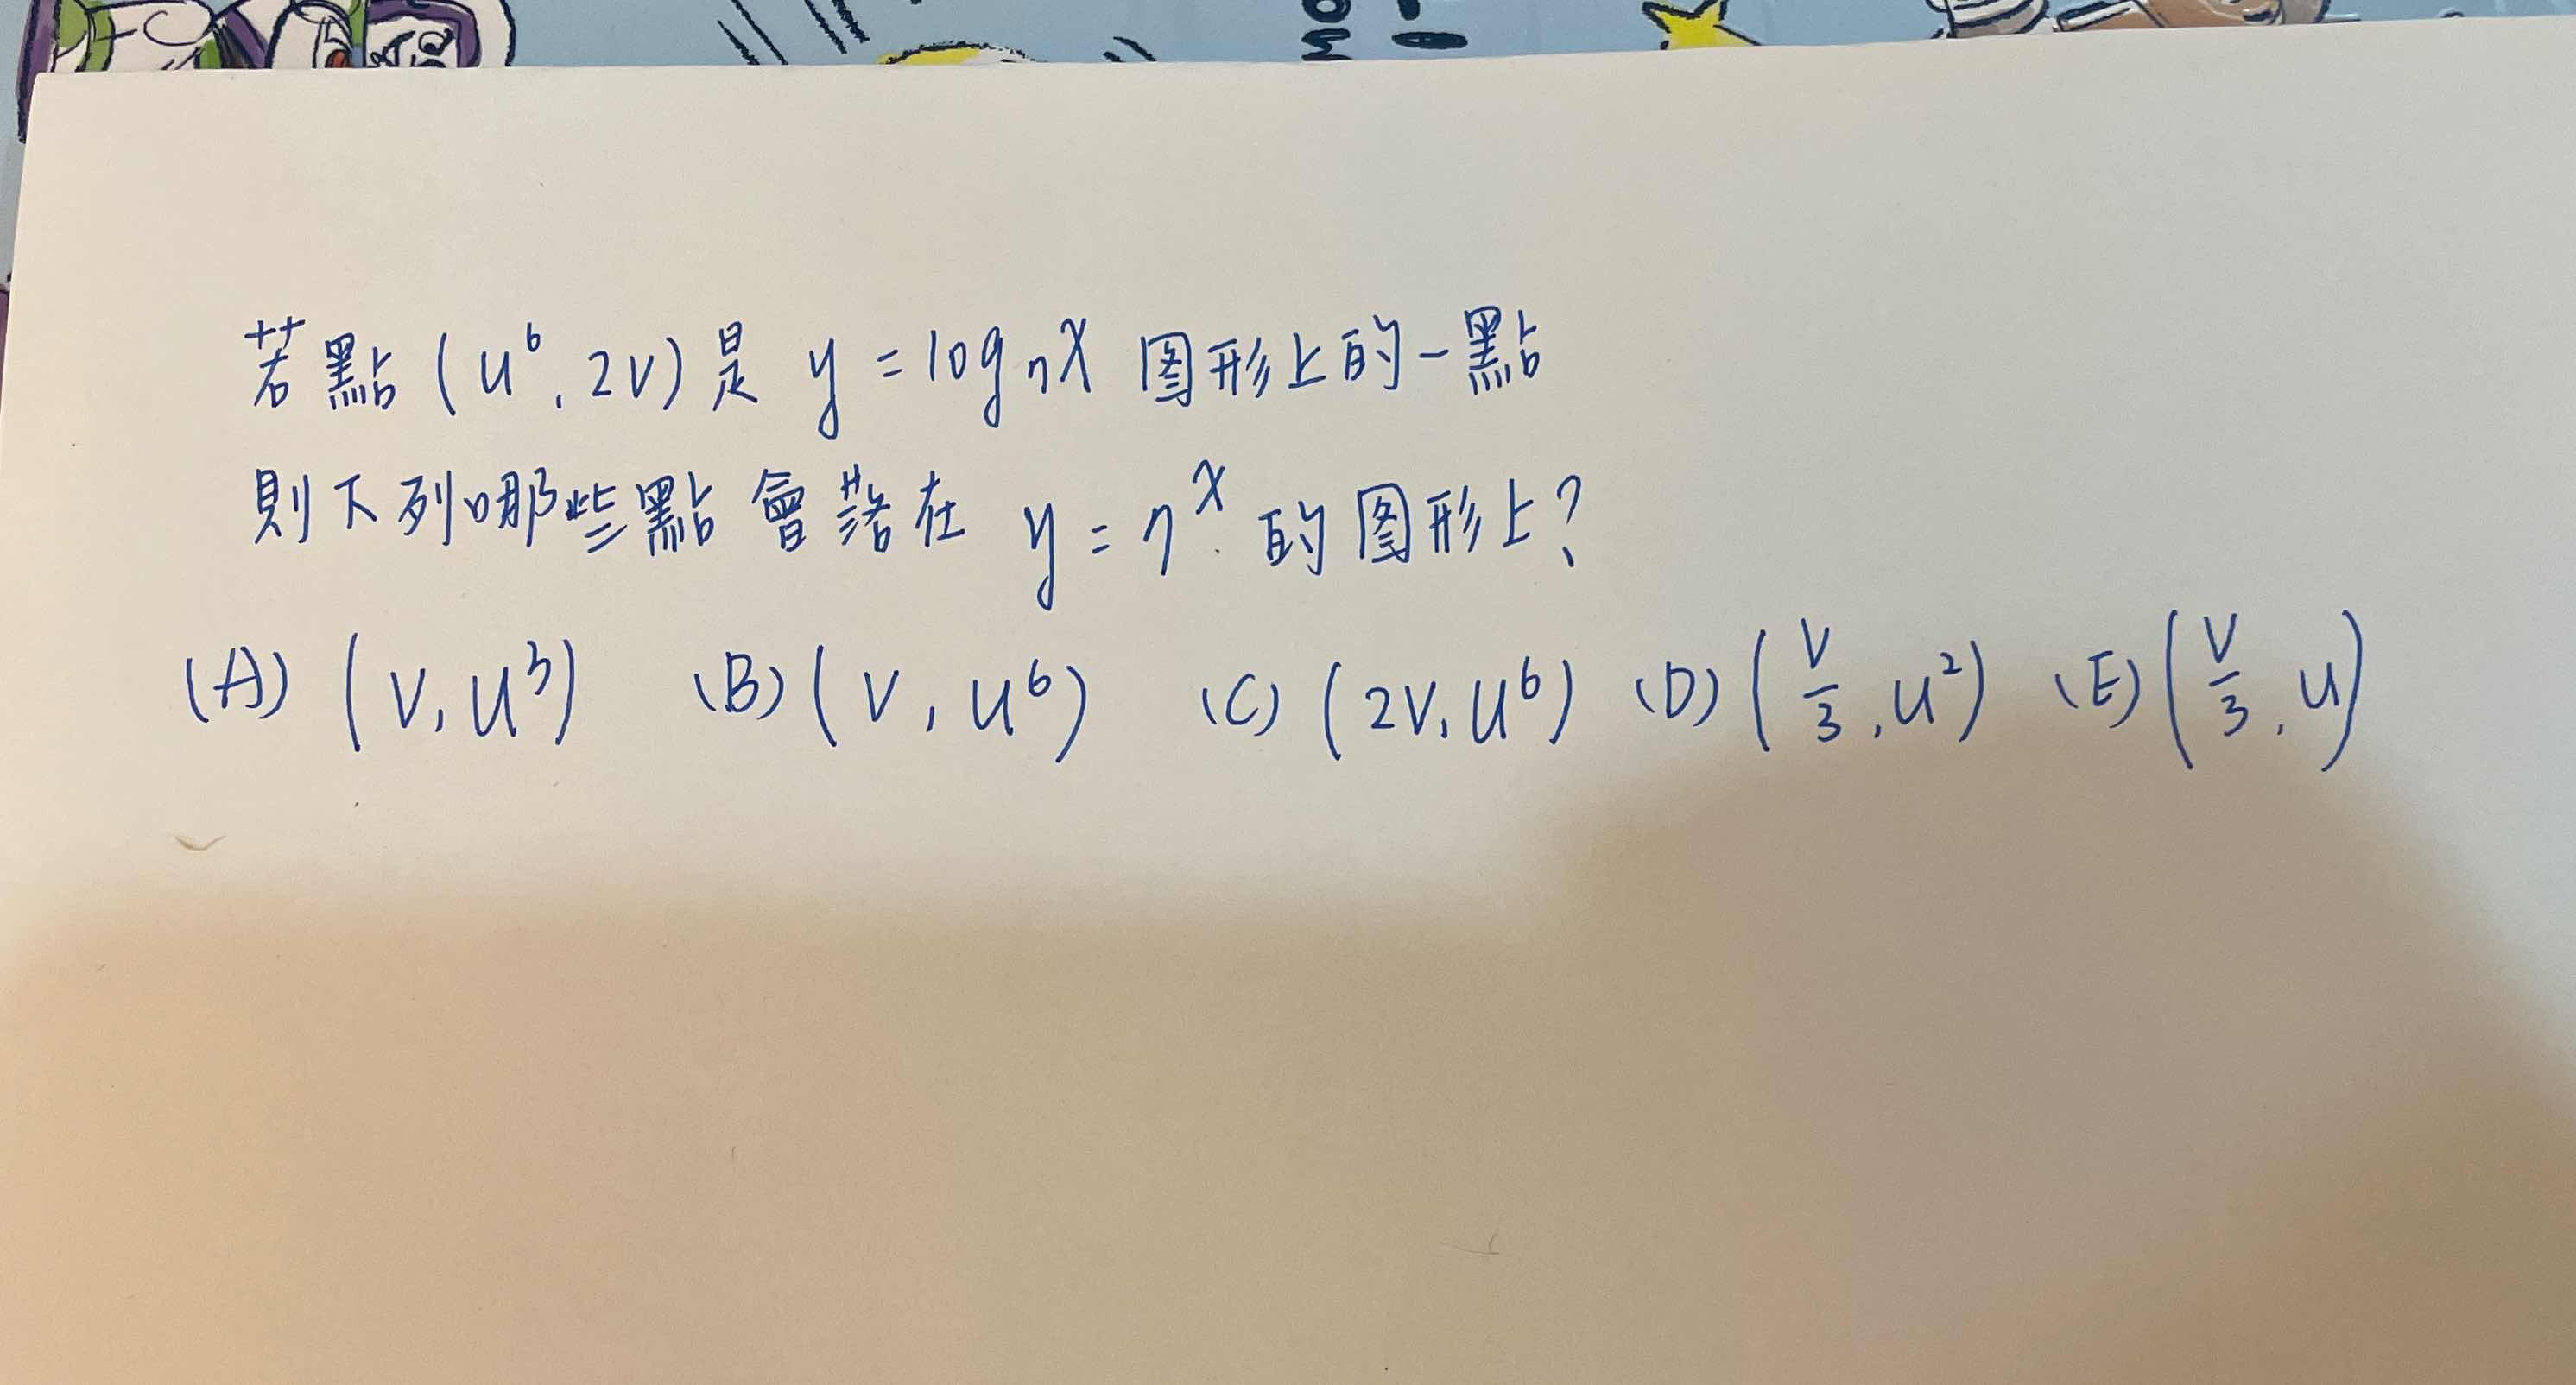 若點(u⁶, 2v)是 y = log₇x 图形上的一點
則下列哪些點會落在 y = 7ˣ 的图形上?
(A) (v, u³) (B) (v, u⁶) (C) (2v, u⁶) (D) (v/3, u²) (E) (v/3, u)